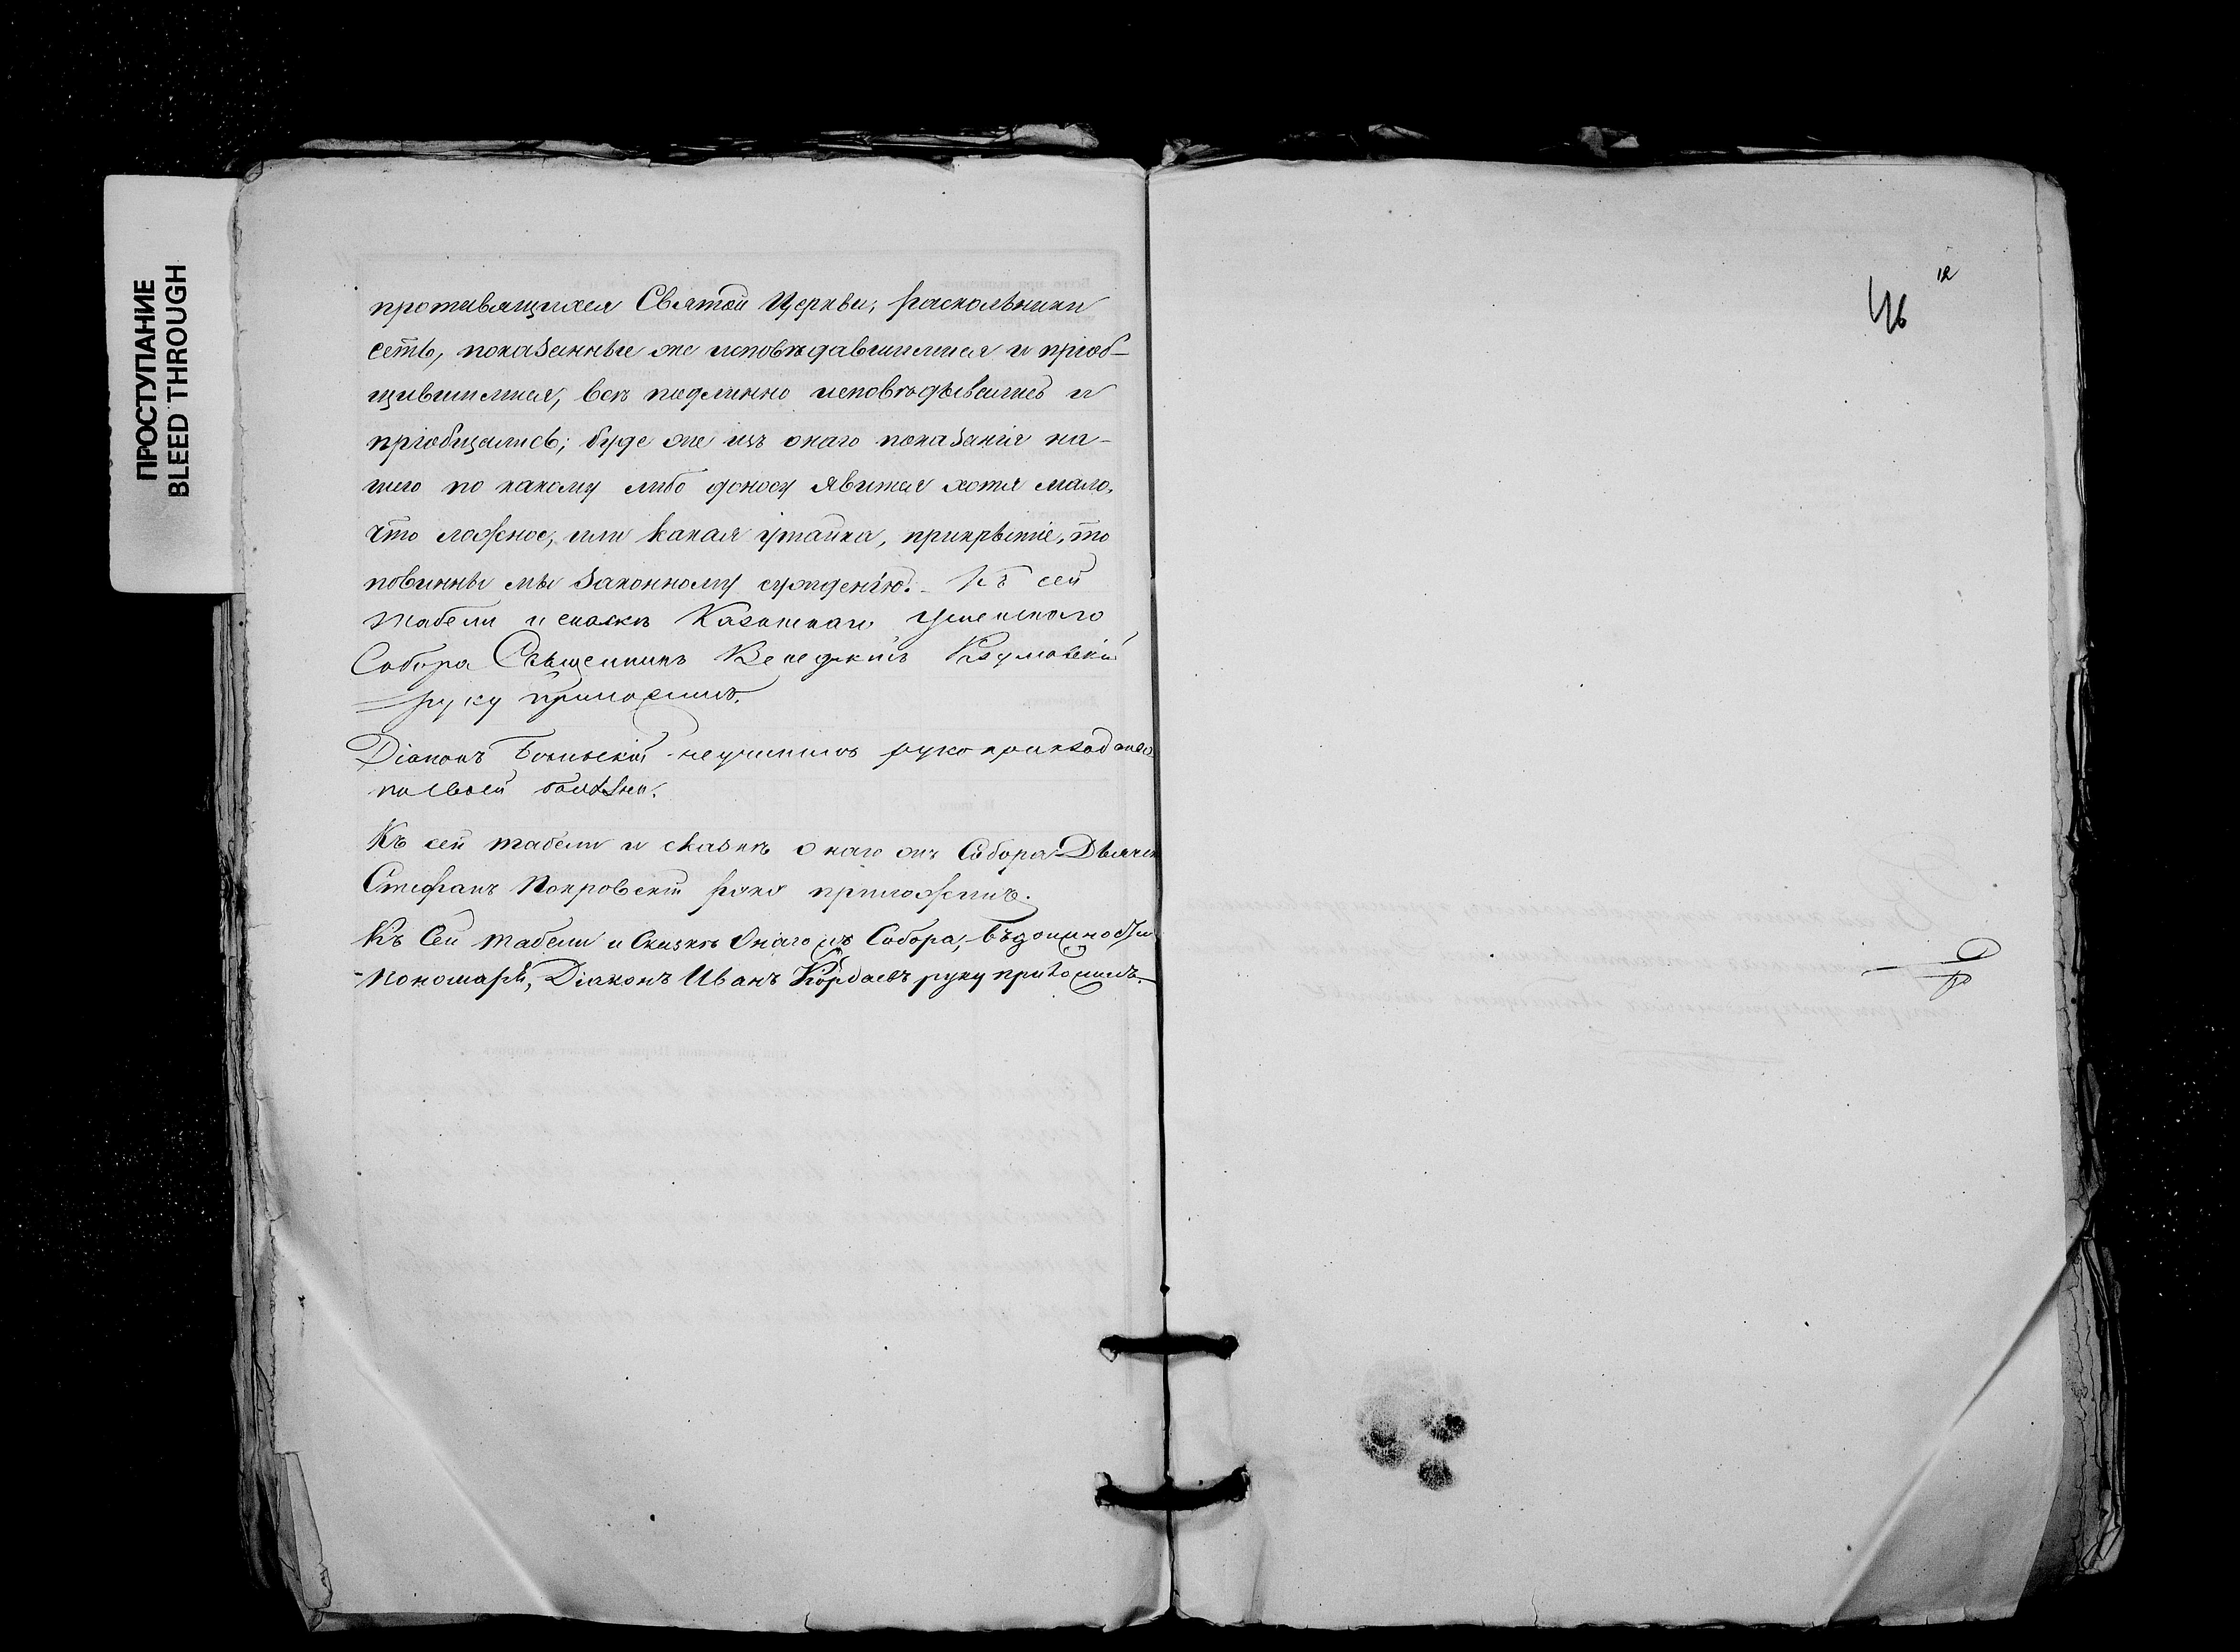 ПРОСТУПАНИЕ
BLEED THROUGH
противящихся Святой Церкви, раскольники
есть, показанные же исповѣдавшимися и пріоб-
щившимися, всѣ подлинно исповѣдывались и
пріобщались; буде же изъ онаго показанія на-
шего по какому либо доносу явится хотя мало,
что ложное, или какая утайка, прикрытіе, то
повинны мы законному сужденію. Къ сей
табели и сказкѣ Казанскаго
Собора Священникъ
руку приложилъ.
Діаконъ неучинилъ рукоприкладство
по своей болѣзни.
Къ сей табели и сказкѣ онаго жъ Собора Дьячекъ
Стефанъ Покровскій руку приложилъ.
Къ Сей табели и Сказкѣ Онаго жъ Собора,
пономаря, Діаконъ Иванъ руку приложилъ.
46
12